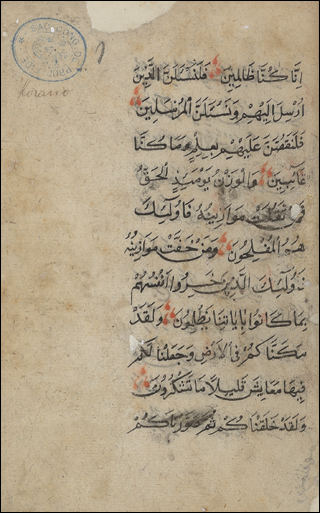 SAC CONG DE PROP
Korano
اِنَّا كُنَّا ظَالِمِينَ فَلَنَسْئَلَنَّ الَّذِينَ
اُرْسِلَ اِلَيْهِمْ وَنَسْئَلَنَّ الْمُرْسَلِينَ
فَلَنَقُصَّنَّ عَلَيْهِمْ بِعِلْمٍ وَمَا كُنَّا
غَايِبِينَ وَالْوَزْنُ يَوْمَيِذٍ الْحَقُّ
فَمَنْ ثَقُلَتْ مَوَازِينُهُ فَاُولَيِكَ
هُمُ الْمُفْلِحُونَ وَمَنْ خَفَّتْ مَوَازِينُهُ
فَاُولَيِكَ الَّذِينَ خَسِرُوا اَنْفُسَهُمْ
بِمَا كَانُوا بِاَيَاتِنَا يَظْلِمُونَ وَلَقَدْ
مَكَّنَّاكُمْ فِي الْاَرْضِ وَجَعَلْنَا لَكُمْ
فِيهَا مَعَايِشَ قَلِيلًا مَا تَشْكُرُونَ
وَلَقَدْ خَلَقْنَاكُمْ ثُمَّ صَوَّرْنَاكُمْ